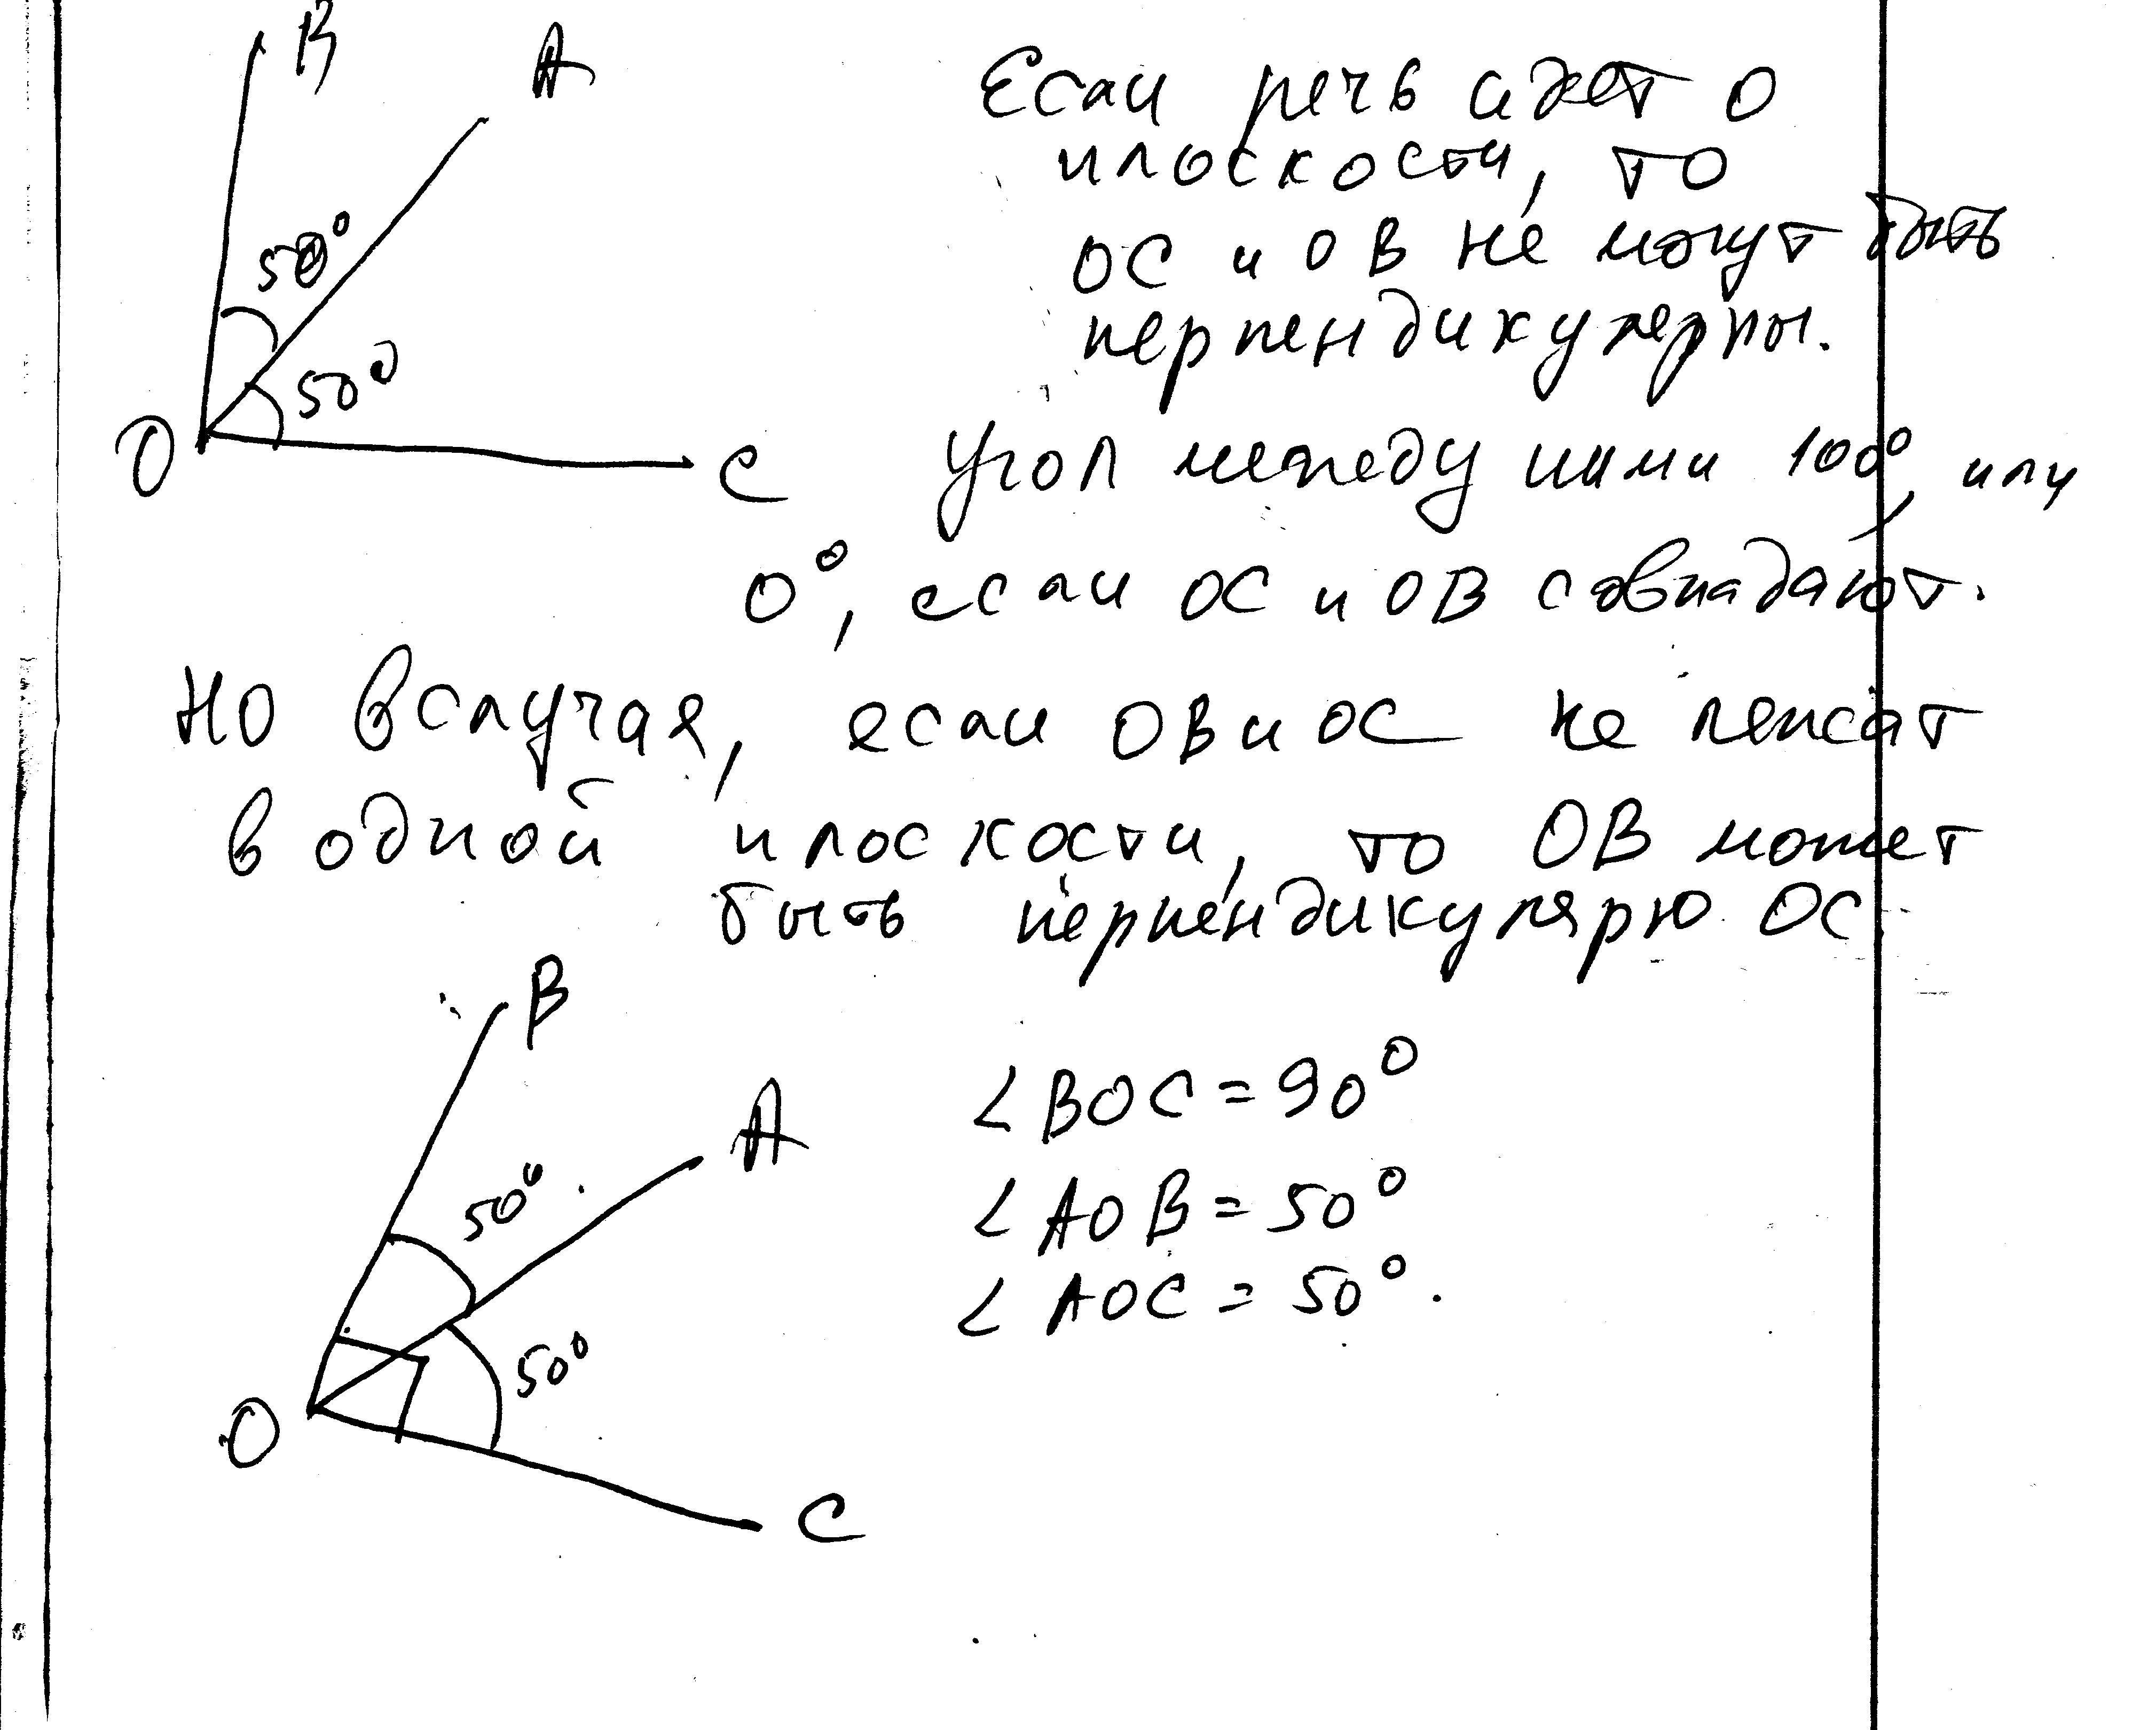 B
A
Если речь идет о
плоскости, то
50°
ОС и ОВ не могут быть
перпендикулярны.
50°
O
C
Угол между ними 100°, или
0°, если ОС и ОВ совпадают.
Но в случая, если ОВ и ОС не лежат
в одной плоскости, то ОВ может
быть перпендикулярю ОС.
B
A
∠BOC = 90°
50°
∠AOB = 50°
∠AOC = 50°.
50°
O
C